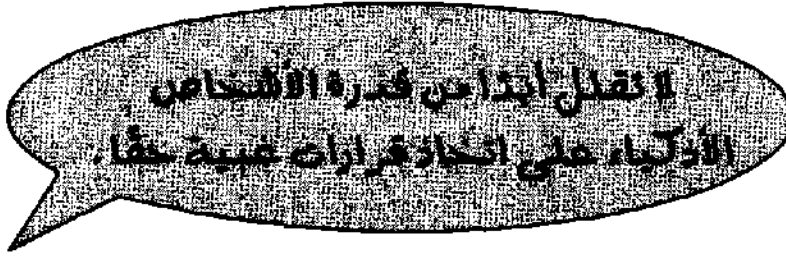 لا تقلل أبدًا من قدرة الأشخاص
الأذكياء على اتخاذ قرارات غبية حقًا.